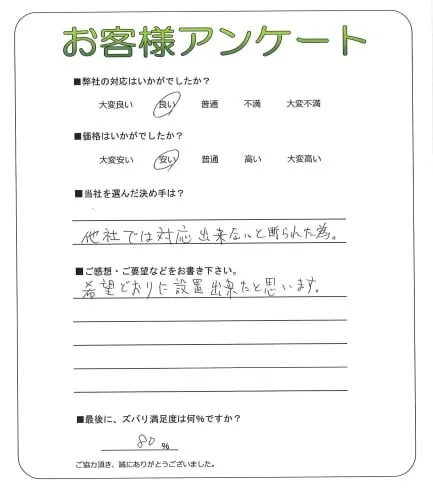 お客様アンケート
■弊社の対応はいかがでしたか？
大変良い 良い 普通 不満 大変不満
■価格はいかがでしたか？
大変安い 安い 普通 高い 大変高い
■当社を選んだ決め手は？
他社では対応出来ないと断られた為。
■ご感想・ご要望などをお書き下さい。
希望どおりに設置出来たと思います。
■最後に、ズバリ満足度は何％ですか？
80 %
ご協力頂き、誠にありがとうございました。